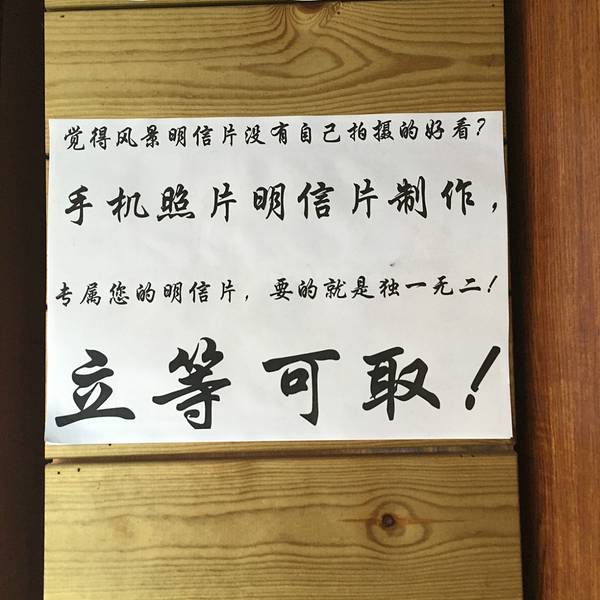 觉得风景明信片没有自己拍摄的好看?
手机照片明信片制作,
专属您的明信片,要的就是独一无二!
立等可取!